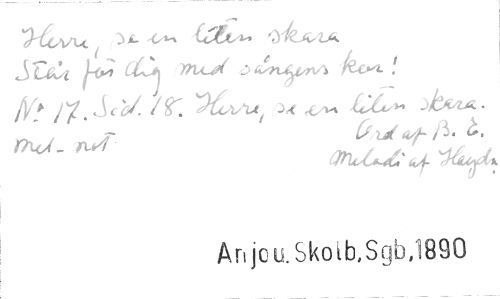 Herre, se en liten skara
Står för dig med sångens kor!
No 17. Sid. 18. Herre, se en liten skara.
Ord af B. E.
mel-not
Melodi af Haydn
Anjou. Skolb, Sgb, 1890